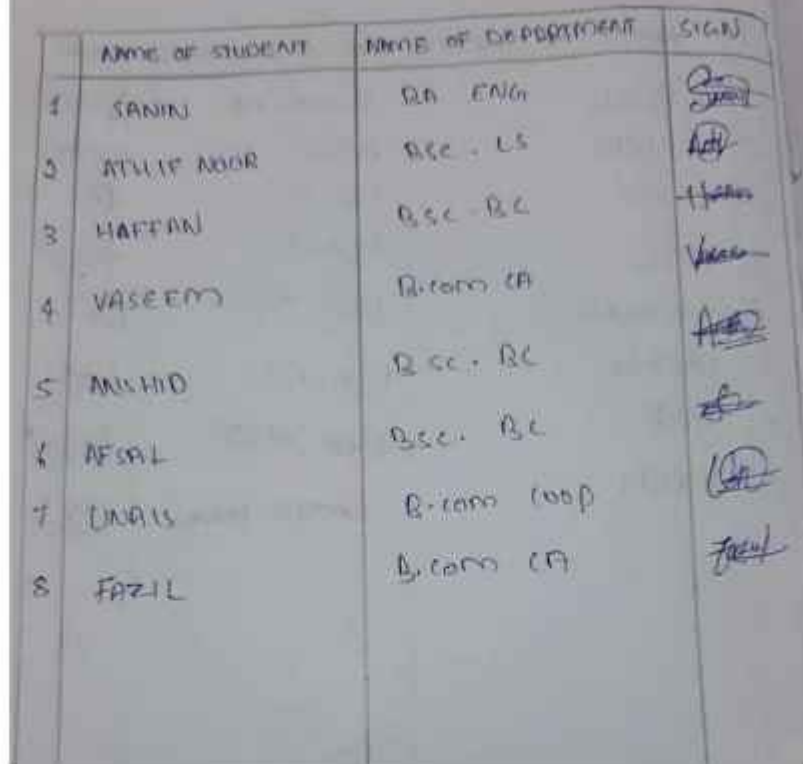 NAME OF STUDENT NAME OF DEPARTMENT SIGN
1 SANIN BA ENG
2 ATHIF NOOR BSC. LS
3 HAFFAN BSC. BC
4 VASEEM B.com CA
5 B SC. BC
6 AFSAL BSC. BC
7 UNAIS B.com COOP
8 FAZIL B.com CA